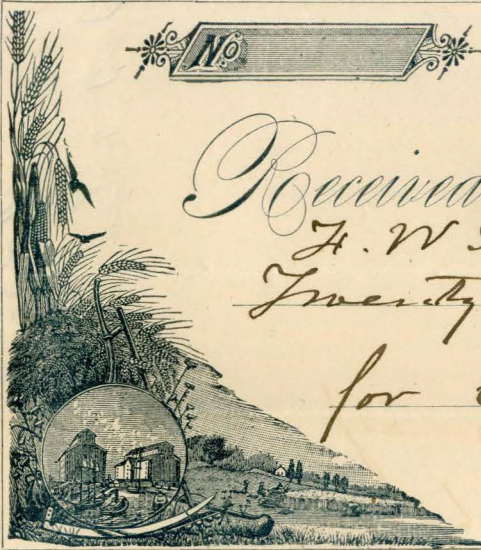 No
Received
H. W
Twenty
for